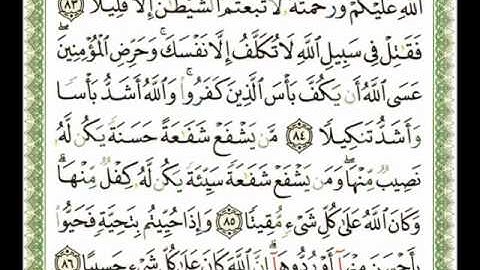 اللَّهِ عَلَيْكُمْ وَرَحْمَتُهُ لَاتَّبَعْتُمُ الشَّيْطَٰنَ إِلَّا قَلِيلًا ٨٣
فَقَٰتِلْ فِى سَبِيلِ اللَّهِ لَا تُكَلَّفُ إِلَّا نَفْسَكَ ۚ وَحَرِّضِ الْمُؤْمِنِينَ ۖ
عَسَى اللَّهُ أَن يَكُفَّ بَأْسَ الَّذِينَ كَفَرُوا۟ ۚ وَاللَّهُ أَشَدُّ بَأْسًا
وَأَشَدُّ تَنكِيلًا ٨٤ مَّن يَشْفَعْ شَفَٰعَةً حَسَنَةً يَكُن لَّهُۥ
نَصِيبٌ مِّنْهَا ۖ وَمَن يَشْفَعْ شَفَٰعَةً سَيِّئَةً يَكُن لَّهُۥ كِفْلٌ مِّنْهَا ۗ
وَكَانَ اللَّهُ عَلَىٰ كُلِّ شَىْءٍ مُّقِيتًا ٨٥ وَإِذَا حُيِّيتُم بِتَحِيَّةٍ فَحَيُّوا۟
بِأَحْسَنَ مِنْهَآ أَوْ رُدُّوهَآ ۗ إِنَّ اللَّهَ كَانَ عَلَىٰ كُلِّ شَىْءٍ حَسِيبًا ٨٦